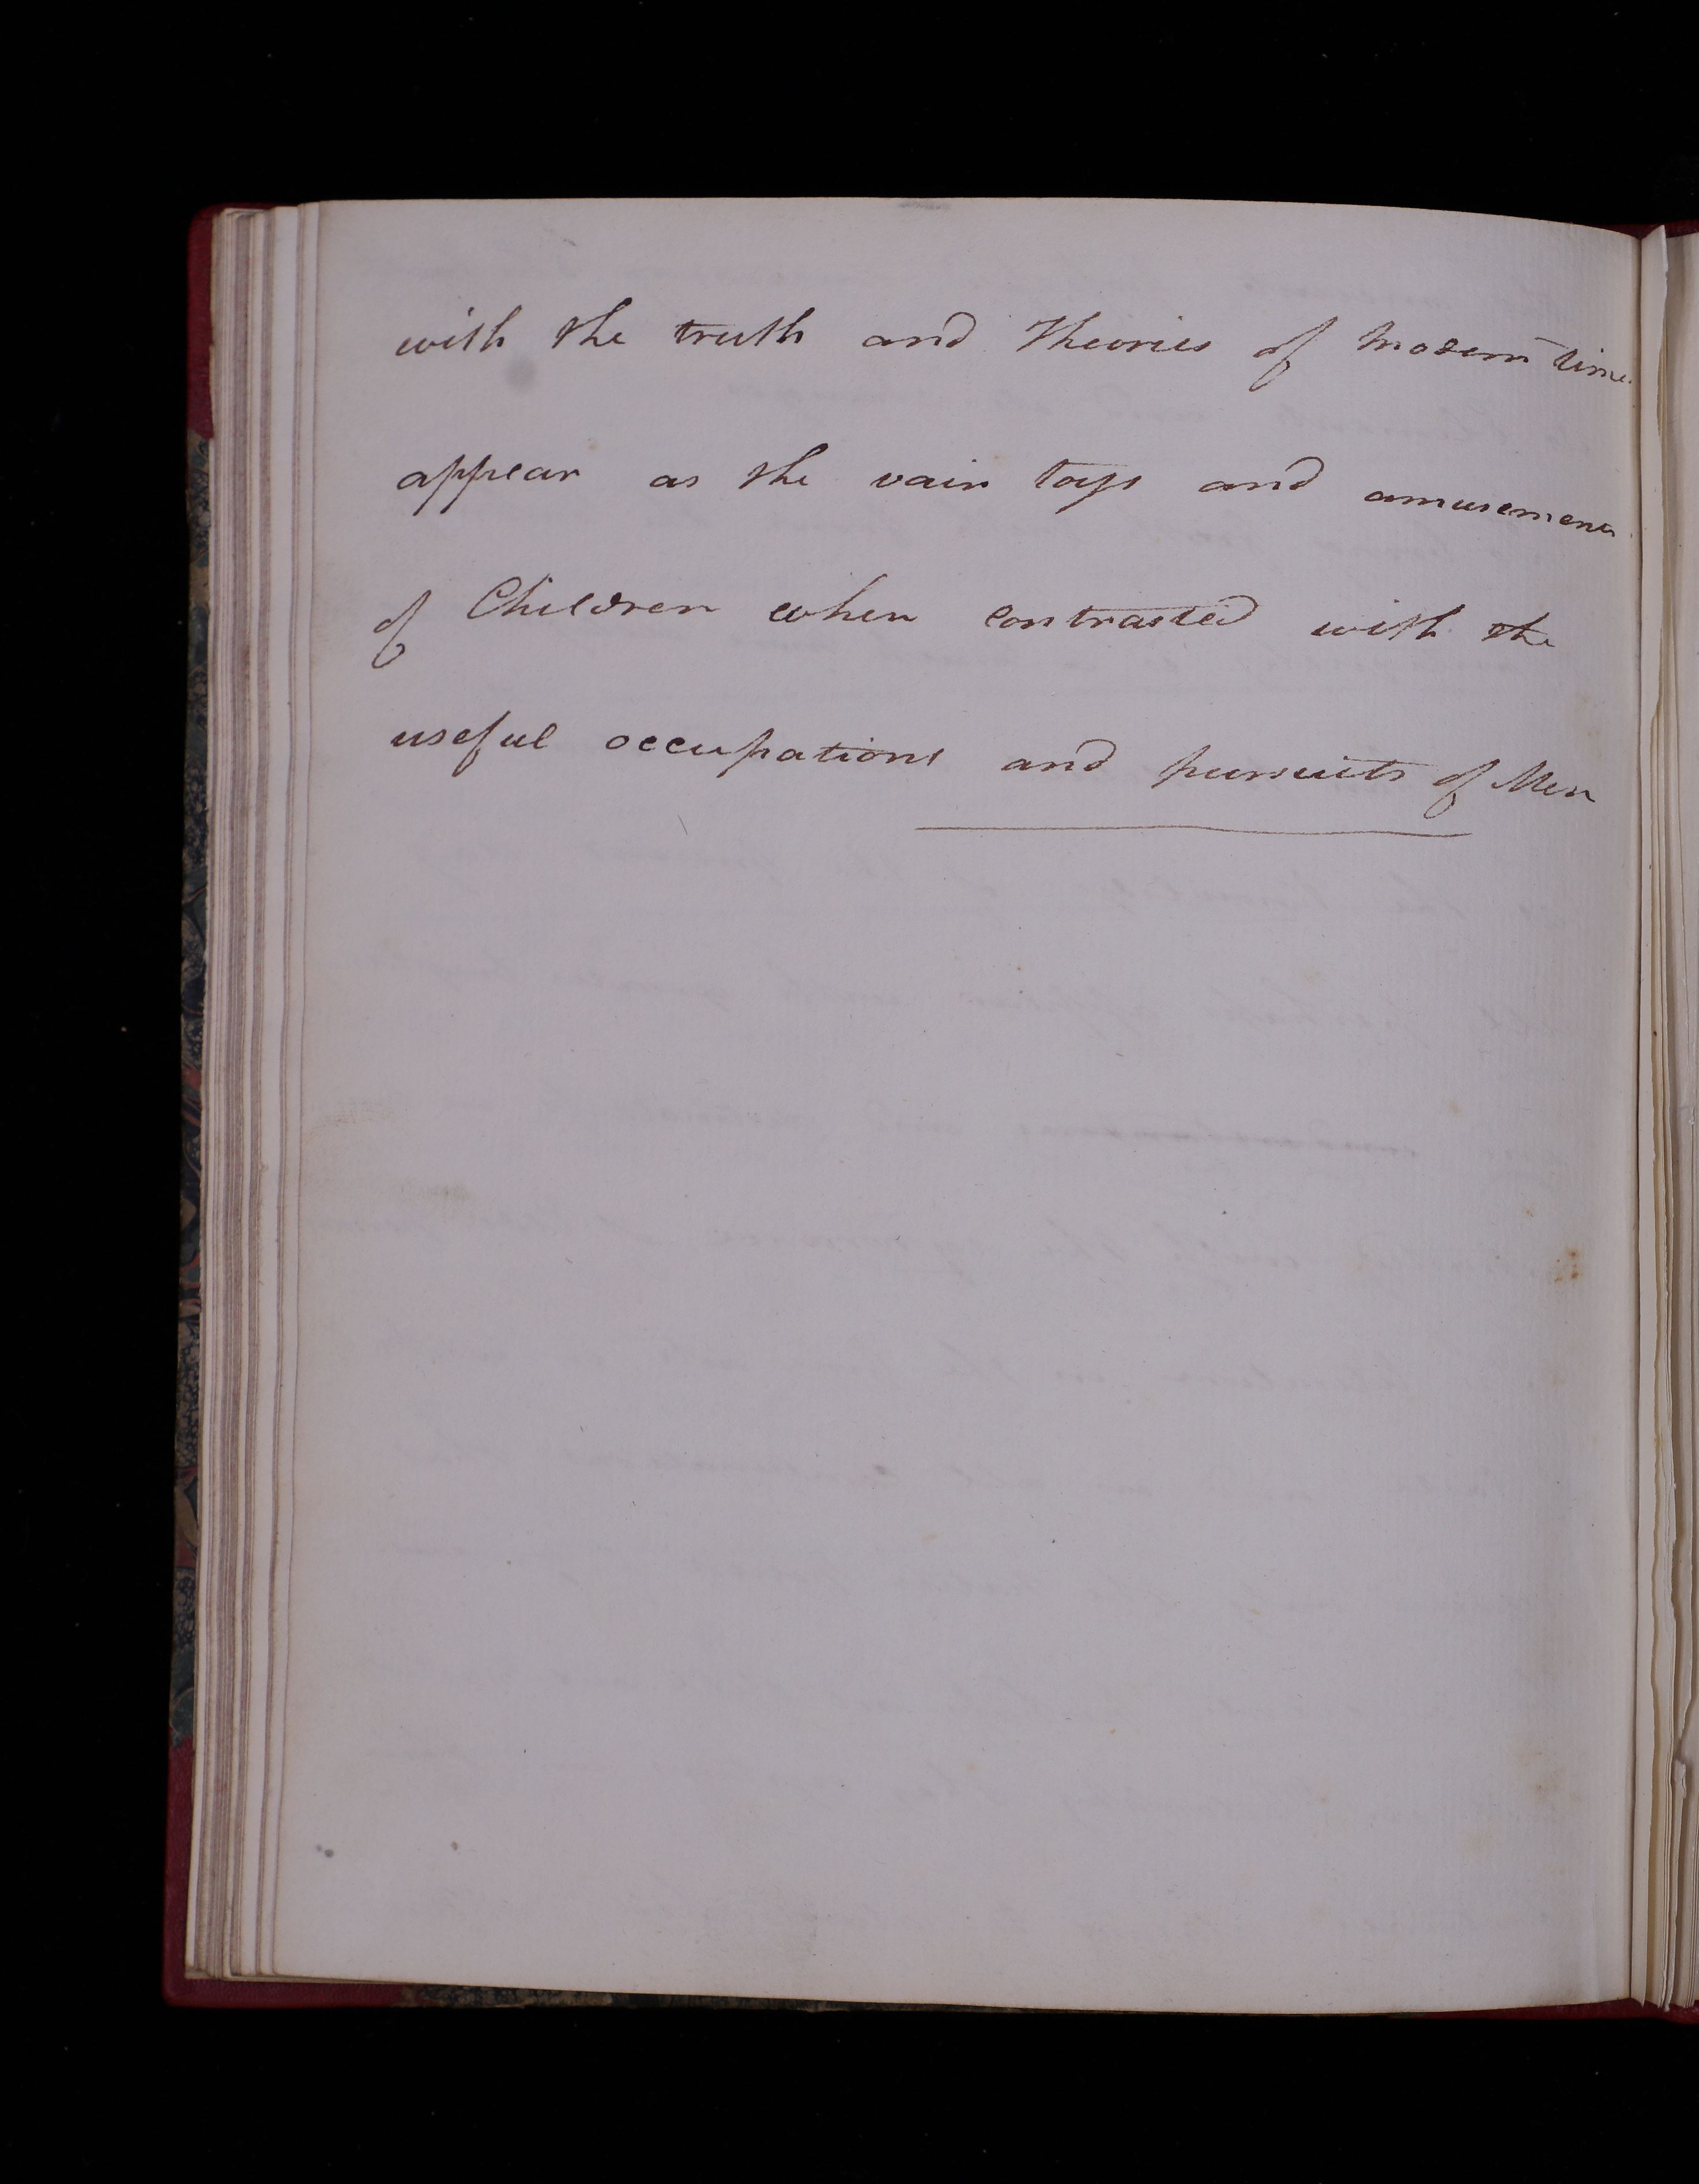 with the truth and Theories of Modern time
appear as the vain toys and amusements
of Children when contrasted with the
useful occupations and pursuits of Men